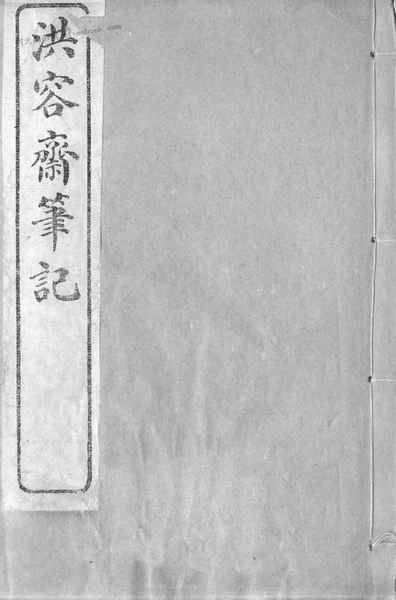 洪容齋筆記